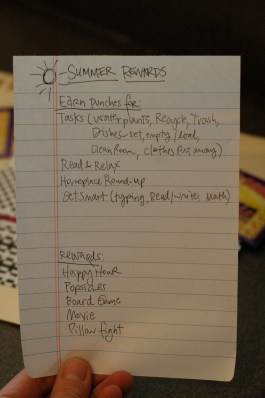 SUMMER REWARDS
Earn Punches for:
Tasks (water plants, Recycle, Trash,
Dishes-set, empty/load,
Clean Room, Clothes Put away)
Read & Relax
Homeplace Round-up
Get Smart (typing, Read/write, Math)
Rewards:
Happy Hour
Popsicles
Board Game
Movie
Pillow fight